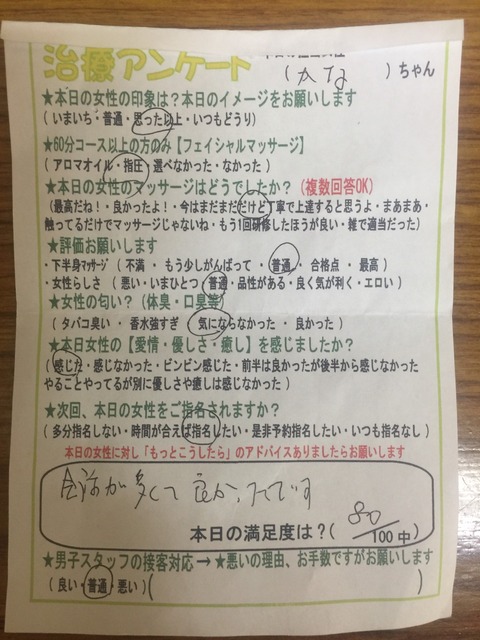 治療アンケート
(かな)ちゃん
★本日の女性の印象は?本日のイメージをお願いします
(いまいち・普通・思った以上・いつもどうり)
★60分コース以上の方のみ【フェイシャルマッサージ】
(アロマオイル・指圧・選べなかった・なかった)
★本日の女性のマッサージはどうでしたか?(複数回答OK)
(最高だね!・良かったよ!・今はまだまだだけど丁寧で上達すると思うよ・まあまあ・
触ってるだけでマッサージじゃないね・もう1回研修したほうが良い・雑で適当だった)
★評価お願いします
・下半身マッサージ(不満・もう少しがんばって・普通・合格点・最高)
・女性らしさ(悪い・いまひとつ・普通・品性がある・良く気が利く・エロい)
★女性の匂い?(体臭・口臭等)
(タバコ臭い・香水強すぎ・気にならなかった・良かった)
★本日女性の【愛情・優しさ・癒し】を感じましたか?
(感じた・感じなかった・ビンビン感じた・前半は良かったが後半から感じなかった
やることやってるが別に優しさや癒しは感じなかった)
★次回、本日の女性をご指名されますか?
(多分指名しない・時間が合えば指名したい・是非予約指名したい・いつも指名なし)
本日の女性に対し「もっとこうしたら」のアドバイスありましたらお願いします
会話が多くて良かったです
本日の満足度は?(80/100中)
★男子スタッフの接客対応→★悪いの理由、お手数ですがお願いします
(良い・普通・悪い)( )